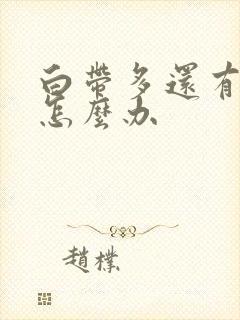 白帶多還有
怎麼办
趙樸